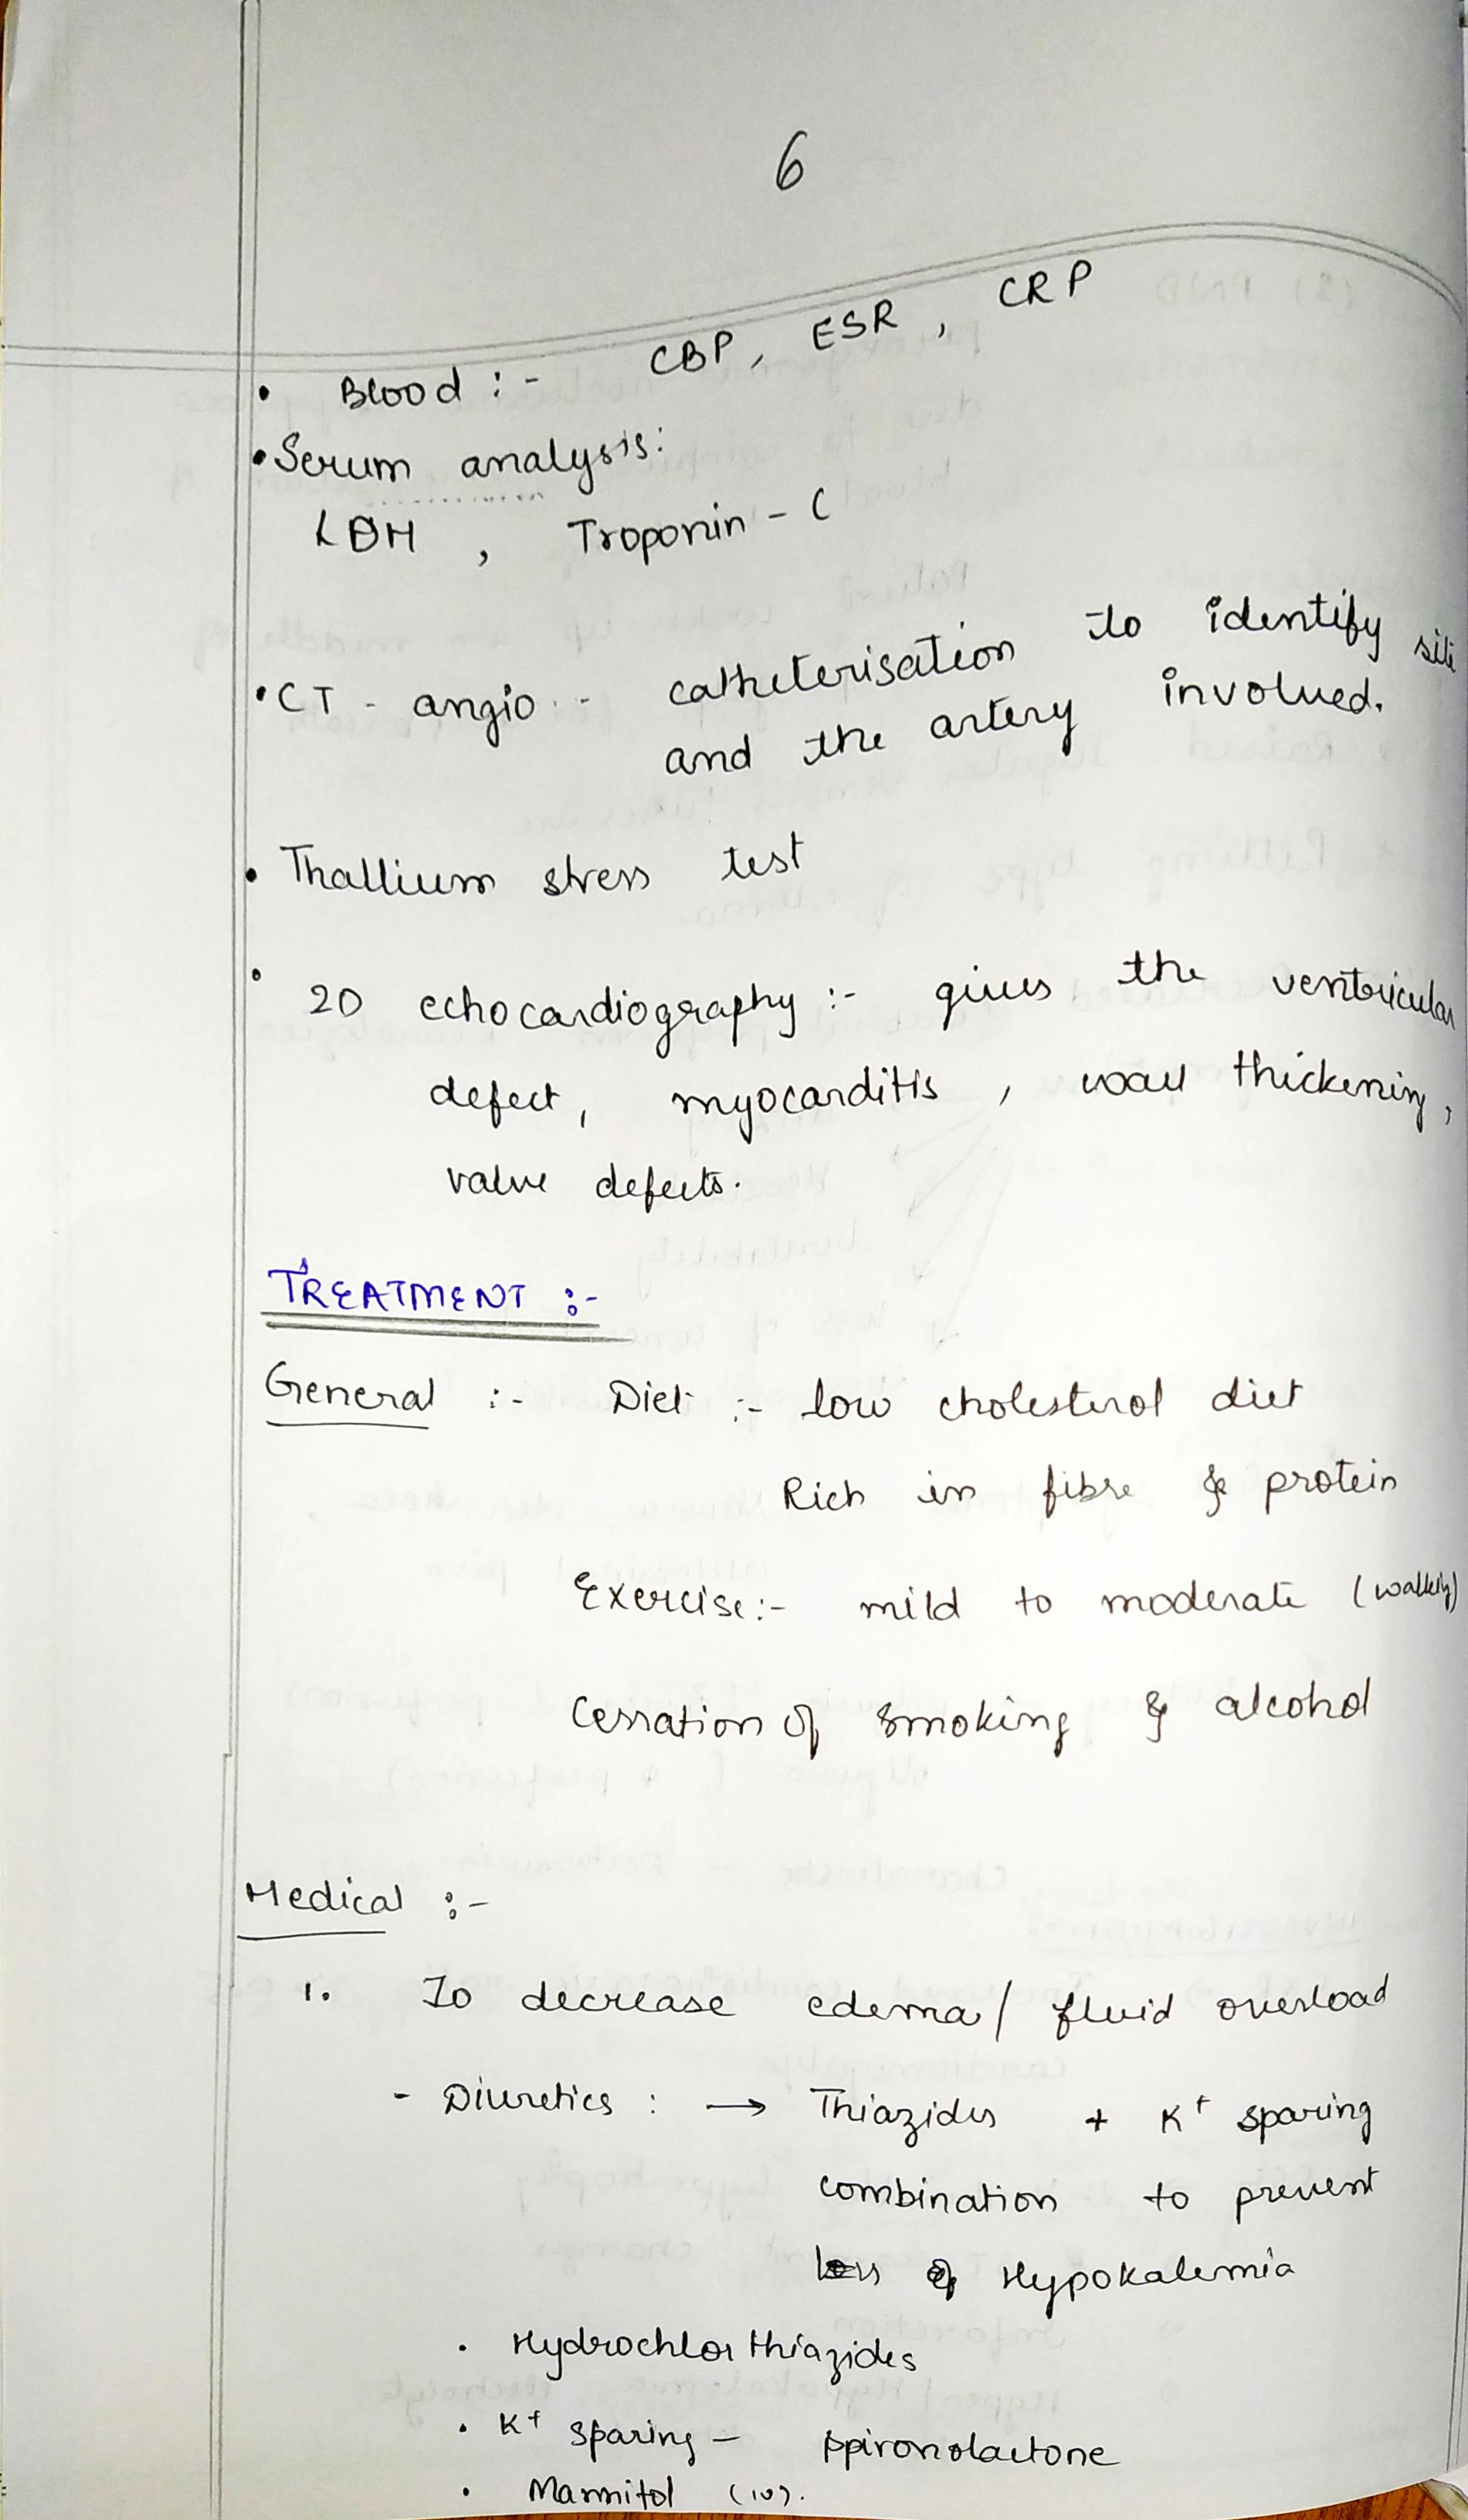 6
• Blood :- CBP, ESR, CRP
• Serum analysis:
LDH , Troponin - C
• CT - angio - catheterisation to identify site
and the artery involved.
• Thallium stress test
• 2D echocardiography :- gives the ventricular
defect, myocarditis , wall thickening,
valve defects.
TREATMENT :-
General :- Diet :- low cholesterol diet
Rich in fibre & protein
Exercise:- mild to moderate (walking)
Cessation of smoking & alcohol
Medical :-
1. To decrease edema/ fluid overload
- Diuretics : → Thiazides + K+ sparing
combination to prevent
loss of Hypokalemia
• Hydrochlor thiazides
• K+ sparing - spironolactone
• Mannitol (IV).